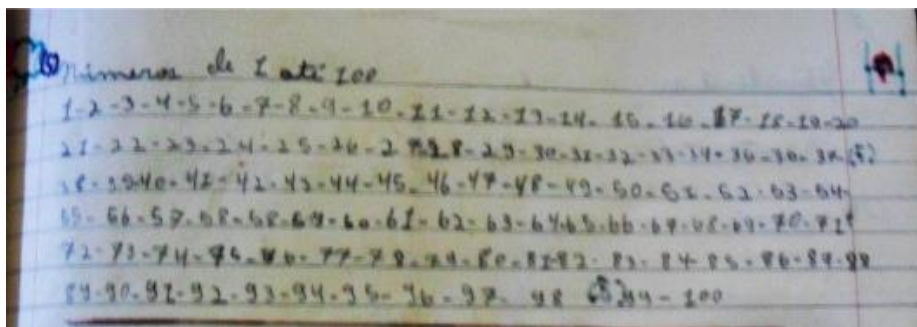 Números de 1 até 100
1-2-3-4-5-6-7-8-9-10-11-12-13-14-15-16-17-18-19-20
21-22-23-24-25-26-27-28-29-30-31-32-33-34-35-36-37
38-39-40-41-42-43-44-45-46-47-48-49-50-51-52-53-54-
55-56-57-58-58-59-60-61-62-63-64-65-66-67-68-69-70-71
72-73-74-75-76-77-78-79-80-81-82-83-84-85-86-87-88
89-90-91-92-93-94-95-96-97-98 99-100